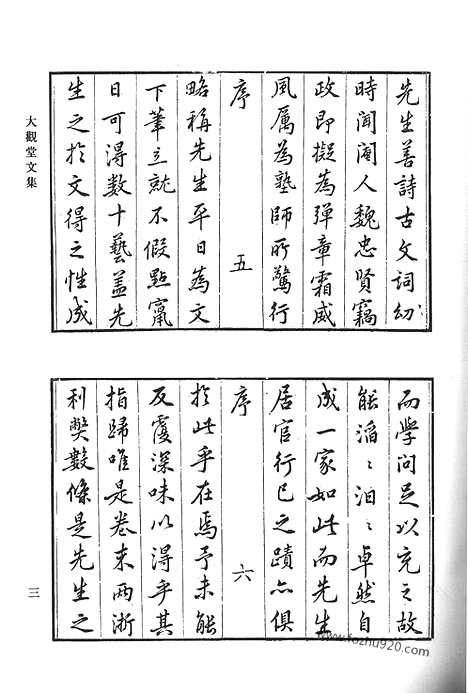 大觀堂文集
先生善詩古文詞幼
時聞閹人魏忠賢竊
政即擬為彈章霜威
風厲為塾師所驚行
序
五
略稱先生平日為文
下筆立就不假點竄
日可得数十藝蓋先
生之於文得之性成
而学问足以充之故
能滔〻汩〻卓然自
成一家如此而先生
居官行己之蹟亦俱
序
六
於此乎在焉予未能
反覆深味以得乎其
指歸唯是卷末兩浙
利獘数條是先生之
三
www.fozhu920.com